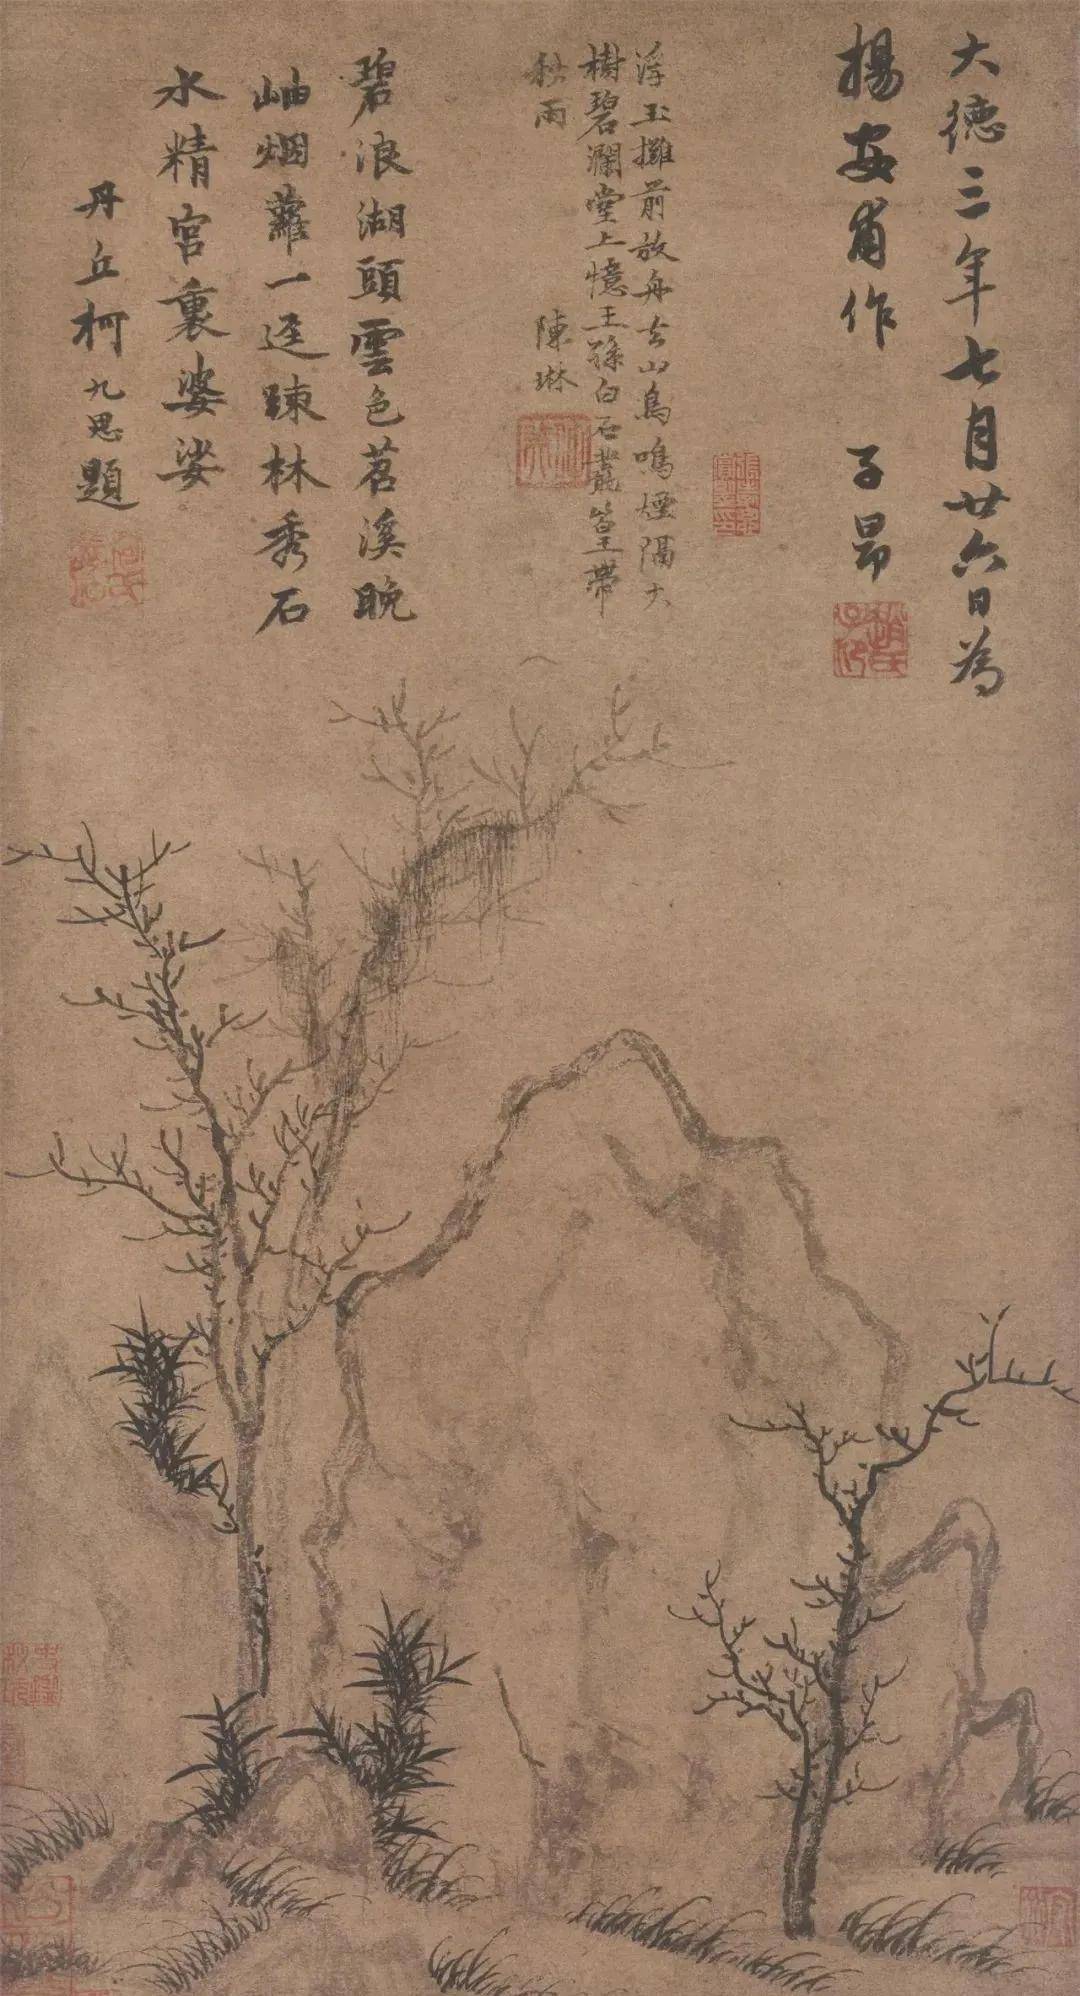 大德三年七月廿六日為
揚安甫作 子昂
趙氏子昂
浮玉攤前放舟去山鳥鳴煙隔大
樹碧瀾堂上憶王孫白石叢篁帶
秋雨 陳琳
碧浪湖頭雲色苕溪晚
岫烟蘿一逕踈林秀石
水精宮裏婆娑
丹丘柯九思題